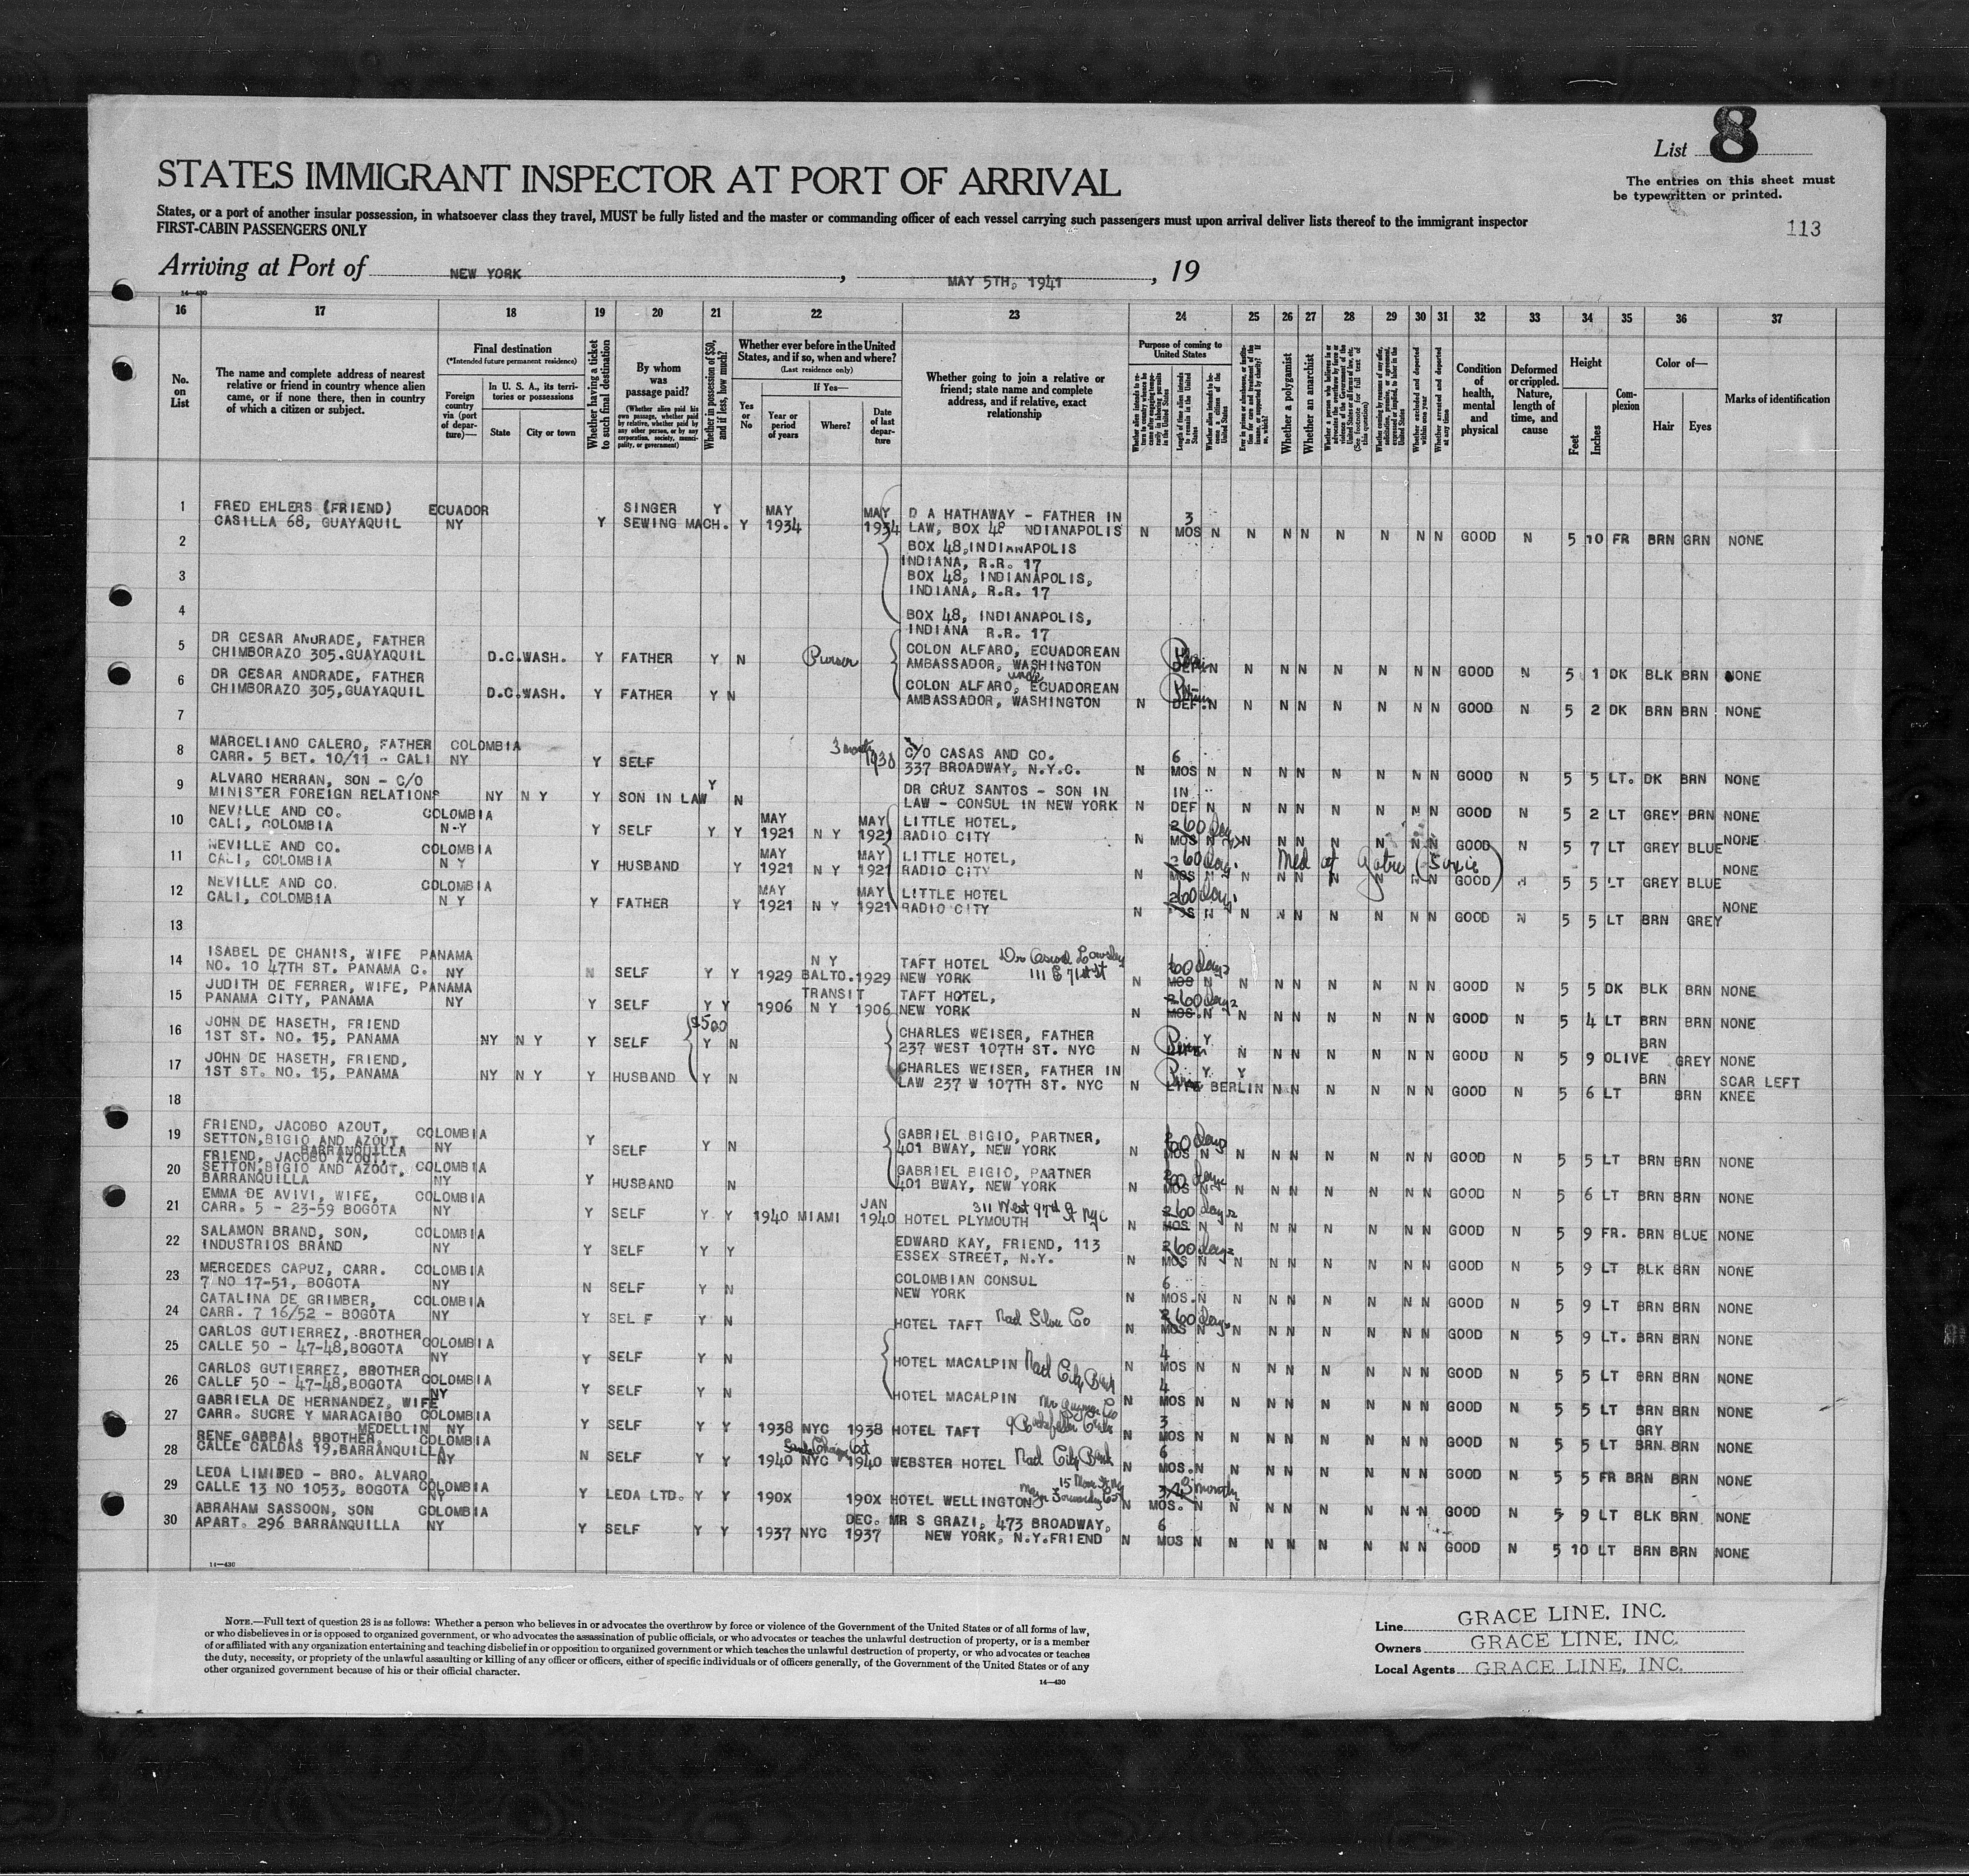 List 8
The entries on this sheet must
be typewritten or printed.
113
STATES IMMIGRANT INSPECTOR AT PORT OF ARRIVAL
States, or a port of another insular possession, in whatsoever class they travel, MUST be fully listed and the master or commanding officer of each vessel carrying such passengers must upon arrival deliver lists thereof to the immigrant inspector
FIRST-CABIN PASSENGERS ONLY
Arriving at Port of NEW YORK, MAY 5TH, 1941, 19
14—430
16 17 18 19 20 21 22 23 24 25 26 27 28 29 30 31 32 33 34 35 36 37
No. on List
The name and complete address of nearest relative or friend in country whence alien came, or if none there, then in country of which a citizen or subject.
Final destination
(*Intended future permanent residence)
Foreign country via (port of departure)—
In U. S. A., its territories or possessions
State
City or town
Whether having a ticket to such final destination
By whom was passage paid?
(Whether alien paid his own passage, whether paid by relative, whether paid by any other person, or by any corporation, society, municipality, or government)
Whether in possession of $50, and if less, how much?
Whether ever before in the United States, and if so, when and where?
(Last residence only)
Yes or No
If Yes—
Year or period of years
Where?
Date of last departure
Whether going to join a relative or friend; state name and complete address, and if relative, exact relationship
Purpose of coming to United States
Length of time alien intends to remain in the United States
Whether alien intends to become a citizen of the United States
Whether a polygamist
Whether an anarchist
Condition of health, mental and physical
Deformed or crippled. Nature, length of time, and cause
Height
Feet
Inches
Complexion
Color of—
Hair
Eyes
Marks of identification
1 FRED EHLERS (FRIEND) ECUADOR SINGER Y MAY MAY D A HATHAWAY - FATHER IN 3
CASILLA 68, GUAYAQUIL NY Y SEWING MACH. Y 1934 1934 LAW, BOX 48 NDIANAPOLIS N MOS N N N N N N N N GOOD N 5 10 FR BRN GRN NONE
2 BOX 48, INDIANAPOLIS
INDIANA, R.R. 17
3 BOX 48, INDIANAPOLIS,
INDIANA, R.R. 17
4 BOX 48, INDIANAPOLIS,
INDIANA R.R. 17
5 DR CESAR ANDRADE, FATHER COLON ALFARO, ECUADOREAN
CHIMBORAZO 305.GUAYAQUIL D.C. WASH. Y FATHER Y N AMBASSADOR, WASHINGTON N N N N N N N N GOOD N 5 1 DK BLK BRN NONE
uncle
6 DR CESAR ANDRADE, FATHER COLON ALFARO, ECUADOREAN
CHIMBORAZO 305,GUAYAQUIL D.C.WASH. Y FATHER Y N AMBASSADOR, WASHINGTON N DEF. N N N N N N N N GOOD N 5 2 DK BRN BRN NONE
7
8 MARCELIANO CALERO, FATHER COLOMBIA 3 months 1938 C/O CASAS AND CO. 6
CARR. 5 BET. 10/11 - CALI NY Y SELF 337 BROADWAY, N.Y.C. N MOS N N N N N N N N GOOD N 5 5 LT. DK BRN NONE
9 ALVARO HERRAN, SON - C/O Y DR CRUZ SANTOS - SON IN IN
MINISTER FOREIGN RELATIONS NY N Y Y SON IN LAW N LAW - CONSUL IN NEW YORK N DEF N N N N N N N N GOOD N 5 2 LT GREY BRN NONE
10 NEVILLE AND CO. COLOMBIA MAY MAY LITTLE HOTEL, 60 days
CALI, COLOMBIA N-Y Y SELF Y Y 1921 N Y 1921 RADIO CITY N MOS N N N N N N N N GOOD N 5 7 LT GREY BLUE NONE
11 NEVILLE AND CO. COLOMBIA MAY MAY LITTLE HOTEL, 60 days
CALI, COLOMBIA N Y Y HUSBAND Y 1921 N Y 1921 RADIO CITY N MOS N N N N N N N N GOOD N 5 5 LT GREY BLUE NONE
12 NEVILLE AND CO. COLOMBIA MAY MAY LITTLE HOTEL 60 days
CALI, COLOMBIA N Y Y FATHER Y 1921 N Y 1921 RADIO CITY N MOS N N N N N N N N GOOD N 5 5 LT BRN GREY NONE
13
14 ISABEL DE CHANIS, WIFE PANAMA N Y TAFT HOTEL 60 days
NO. 10 47TH ST. PANAMA C. NY N SELF Y Y 1929 BALTO. 1929 NEW YORK 111 E 71st St N MOS N N N N N N N N GOOD N 5 5 DK BLK BRN NONE
15 JUDITH DE FERRER, WIFE, PANAMA TRANSIT TAFT HOTEL, 60 days
PANAMA CITY, PANAMA NY Y SELF Y Y 1906 N Y 1906 NEW YORK N MOS. N N N N N N N N GOOD N 5 4 LT BRN BRN NONE
16 JOHN DE HASETH, FRIEND $500 CHARLES WEISER, FATHER Y
1ST ST. NO. 15, PANAMA NY N Y Y SELF Y N 237 WEST 107TH ST. NYC N N N N N N N N GOOD N 5 9 OLIVE BRN GREY NONE
17 JOHN DE HASETH, FRIEND, CHARLES WEISER, FATHER IN Y Y SCAR LEFT
1ST ST. NO. 15, PANAMA NY N Y Y HUSBAND Y N LAW 237 W 107TH ST. NYC N LIFE BERLIN N N N N N N GOOD N 5 6 LT BRN BRN KNEE
18
19 FRIEND, JACOBO AZOUT, COLOMBIA GABRIEL BIGIO, PARTNER, 60 days
SETTON,BIGIO AND AZOUT NY Y SELF Y N 401 BWAY, NEW YORK N MOS N N N N N N N N GOOD N 5 5 LT BRN BRN NONE
BARRANQUILLA
20 FRIEND, JACOBO AZOUT,
SETTON,BIGIO AND AZOUT, COLOMBIA GABRIEL BIGIO, PARTNER 60 days
BARRANQUILLA NY Y HUSBAND N 401 BWAY, NEW YORK N MOS N N N N N N N N GOOD N 5 6 LT BRN BRN NONE
21 EMMA DE AVIVI, WIFE, COLOMBIA JAN 311 West 97th St NYC 60 days
CARR. 5 - 23-59 BOGOTA NY Y SELF Y Y 1940 MIAMI 1940 HOTEL PLYMOUTH N MOS N N N N N N N N GOOD N 5 9 FR. BRN BLUE NONE
22 SALAMON BRAND, SON, COLOMBIA EDWARD KAY, FRIEND, 113 60 days
INDUSTRIOS BRAND NY Y SELF Y Y ESSEX STREET, N.Y. N MOS N N N N N N N N GOOD N 5 9 LT BLK BRN NONE
23 MERCEDES CAPUZ, CARR. COLOMBIA COLOMBIAN CONSUL 6
7 NO 17-51, BOGOTA NY N SELF Y N NEW YORK N MOS. N N N N N N N N GOOD N 5 9 LT BRN BRN NONE
24 CATALINA DE GRIMBER, COLOMBIA 60 days
CARR. 7 16/52 - BOGOTA NY Y SELF Y N HOTEL TAFT N MOS N N N N N N N N GOOD N 5 9 LT. BRN BRN NONE
25 CARLOS GUTIERREZ, BROTHER COLOMBIA 4
CALLE 50 - 47-48,BOGOTA NY Y SELF Y N HOTEL MACALPIN Natl City Bank N MOS N N N N N N N N GOOD N 5 5 LT BRN BRN NONE
26 CARLOS GUTIERREZ, BROTHER COLOMBIA 4
CALLE 50 - 47-48,BOGOTA NY Y SELF Y N HOTEL MACALPIN N MOS N N N N N N N N GOOD N 5 5 LT BRN BRN NONE
27 GABRIELA DE HERNANDEZ, WIFE 3
CARR. SUCRE Y MARACAIBO COLOMBIA Y SELF Y Y 1938 NYC 1938 HOTEL TAFT N MOS N N N N N N N N GOOD N 5 5 LT GRY BRN BRN NONE
MEDELLIN NY
28 RENE GABBAI, BROTHER, COLOMBIA 6
CALLE CALDAS 19,BARRANQUILLA NY N SELF Y Y 1940 NYC 1940 WEBSTER HOTEL Natl City Bank N MOS. N N N N N N N N GOOD N 5 5 FR BRN BRN NONE
29 LEDA LIMIDED - BRO. ALVARO COLOMBIA 3 months
CALLE 13 NO 1053, BOGOTA NY Y LEDA LTD. Y Y 190X 190X HOTEL WELLINGTON N MOS. N N N N N N N N GOOD N 5 9 LT BLK BRN NONE
30 ABRAHAM SASSOON, SON COLOMBIA DEC. MR S GRAZI, 473 BROADWAY, 6
APART. 296 BARRANQUILLA NY Y SELF Y Y 1937 NYC 1937 NEW YORK, N.Y. FRIEND N MOS N N N N N N N N GOOD N 5 10 LT BRN BRN NONE
14—430
NOTE.—Full text of question 28 is as follows: Whether a person who believes in or advocates the overthrow by force or violence of the Government of the United States or of all forms of law,
or who disbelieves in or is opposed to organized government, or who advocates the assassination of public officials, or who advocates or teaches the unlawful destruction of property, or is a member
of or affiliated with any organization entertaining and teaching disbelief in or opposition to organized government or which teaches the unlawful destruction of property, or who advocates or teaches
the duty, necessity, or propriety of the unlawful assaulting or killing of any officer or officers, either of specific individuals or of officers generally, of the Government of the United States or of any
other organized government because of his or their official character.
14—430
Line GRACE LINE, INC.
Owners GRACE LINE, INC.
Local Agents GRACE LINE, INC.